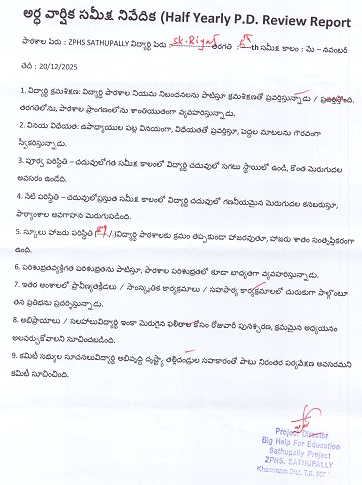 అర్ధ వార్షిక సమీక్ష నివేదిక (Half Yearly P.D. Review Report
పాఠశాల పేరు : ZPHS SATHUPALLY విద్యార్థి పేరు : sk. Riyaz తరగతి : 8th సమీక్ష కాలం : మే – నవంబర్
తేదీ : 20/12/2025
1. విద్యార్థి క్రమశిక్షణ: విద్యార్థి పాఠశాల నియమ నిబంధనలను పాటిస్తూ క్రమశిక్షణతో ప్రవర్తిస్తున్నాడు / ప్రవర్తిస్తోంది.
తరగతిలోను, పాఠశాల ప్రాంగణంలోను శాంతియుతంగా వ్యవహరిస్తున్నాడు.
2. వినయ విధేయత: ఉపాధ్యాయుల పట్ల వినయంగా, విధేయతతో ప్రవర్తిస్తూ, పెద్దల మాటలను గౌరవంగా
స్వీకరిస్తున్నాడు.
3. పూర్వ పరిస్థితి – చదువులోగత సమీక్ష కాలంలో విద్యార్థి చదువులో సగటు స్థాయిలో ఉండి, కొంత మెరుగుదల
అవసరం ఉండేది.
4. నేటి పరిస్థితి – చదువులోప్రస్తుత సమీక్ష కాలంలో విద్యార్థి చదువులో గణనీయమైన మెరుగుదల కనబరుస్తూ,
పాఠ్యాంశాల అవగాహన మెరుగుపడింది.
5. స్కూలు హాజరు పరిస్థితి ( /.)విద్యార్థి పాఠశాలకు క్రమం తప్పకుండా హాజరవుతూ, హాజరు శాతం సంతృప్తికరంగా
ఉంది.
6. పరిశుభ్రతవ్యక్తిగత పరిశుభ్రతను పాటిస్తూ, పాఠశాల పరిశుభ్రతలో కూడా బాధ్యతగా వ్యవహరిస్తున్నాడు.
7. ఇతర అంశాలలో ప్రావీణ్యతక్రీడలు / సాంస్కృతిక కార్యక్రమాలు / సహపాఠ్య కార్యక్రమాలలో చురుకుగా పాల్గొంటూ
తన ప్రతిభను ప్రదర్శిస్తున్నాడు.
8. అభిప్రాయాలు / సలహాలువిద్యార్థి ఇంకా మెరుగైన ఫలితాల కోసం రోజువారీ పునశ్చరణ, క్రమమైన అధ్యయనం
అలవర్చుకోవాలని సూచించబడింది.
9. కమిటీ సభ్యుల సూచనలువిద్యార్థి అభివృద్ధి దృష్ట్యా తల్లిదండ్రుల సహకారంతో పాటు నిరంతర పర్యవేక్షణ అవసరమని
కమిటీ సూచించింది.
Project Director
Big Help For Education
Sathupally Project
ZPHS. SATHUPALLY
Khammam Dist. T.S.